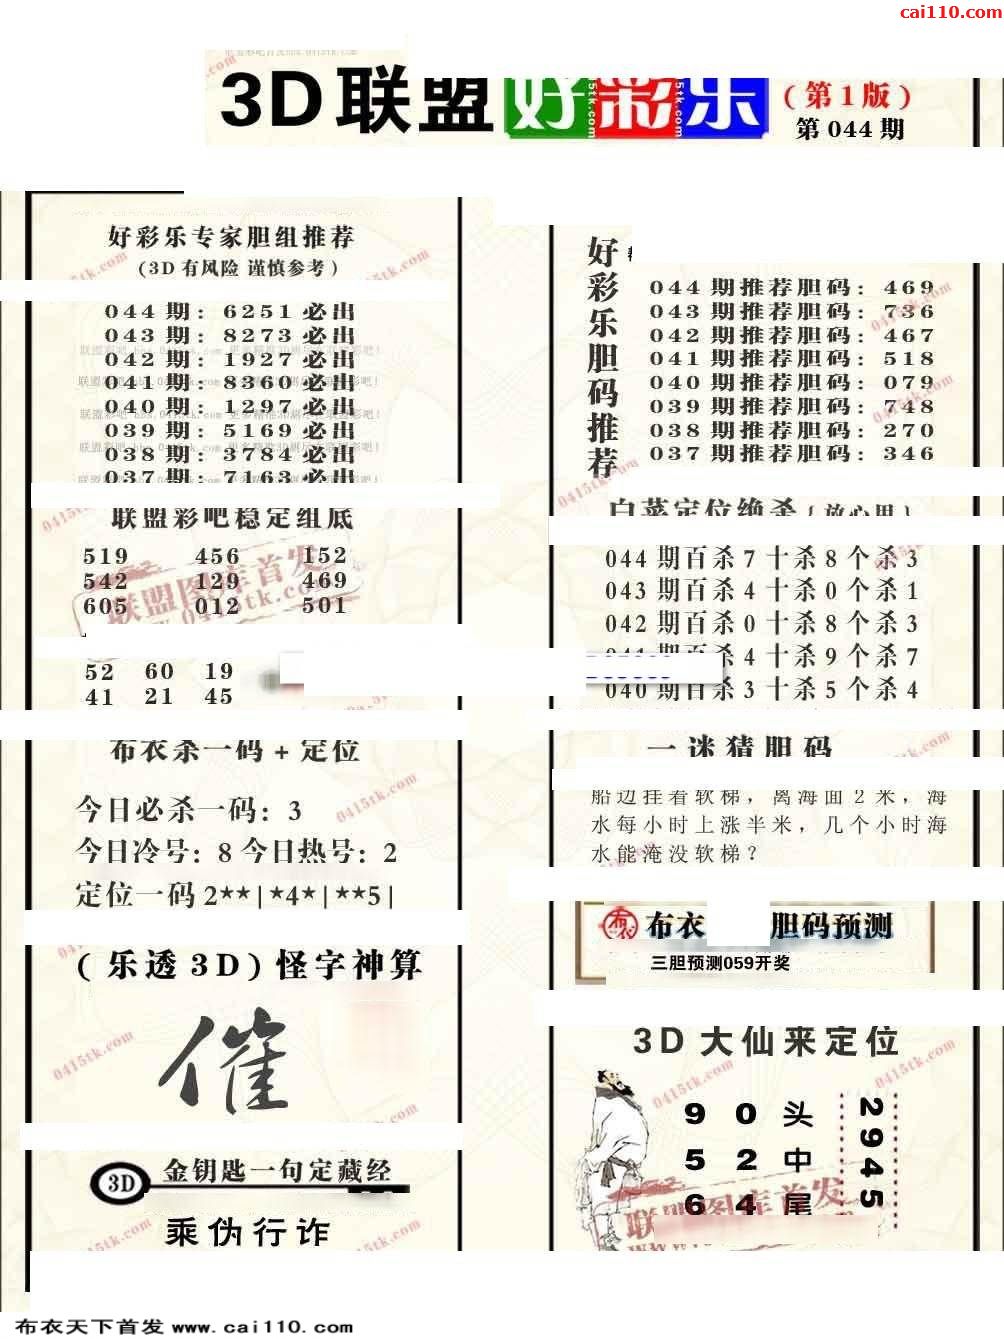 cai110.com
3D联盟好彩乐
(第1版)
第044期
好彩乐专家胆组推荐
(3D有风险 谨慎参考)
044期: 6251必出
043期: 8273必出
042期: 1927必出
041期: 8360必出
040期: 1297必出
039期: 5169必出
038期: 3784必出
037期: 7163必出
联盟彩吧稳定组底
519 456 152
542 129 469
605 012 501
52 60 19
41 21 45
布衣杀一码+定位
今日必杀一码: 3
今日冷号: 8 今日热号: 2
定位一码 2**|*4*|**5|
(乐透3D)怪字神算
催
3D 金钥匙一句定藏经
乘伪行诈
好彩乐胆码推荐
044期推荐胆码: 469
043期推荐胆码: 736
042期推荐胆码: 467
041期推荐胆码: 518
040期推荐胆码: 079
039期推荐胆码: 748
038期推荐胆码: 270
037期推荐胆码: 346
白菜定位绝杀{放心用}
044期百杀7十杀8个杀3
043期百杀4十杀0个杀1
042期百杀0十杀8个杀3
041期百杀4十杀9个杀7
040期百杀3十杀5个杀4
一迷猜胆码
船边挂着软梯，离海面2米，海
水每小时上涨半米，几个小时海
水能淹没软梯？
布衣 胆码预测
三胆预测059开奖
3D大仙来定位
9 0 头
5 2 中
6 4 尾
2945
联盟图库首发
0415tk.com
布衣天下首发 www.cai110.com